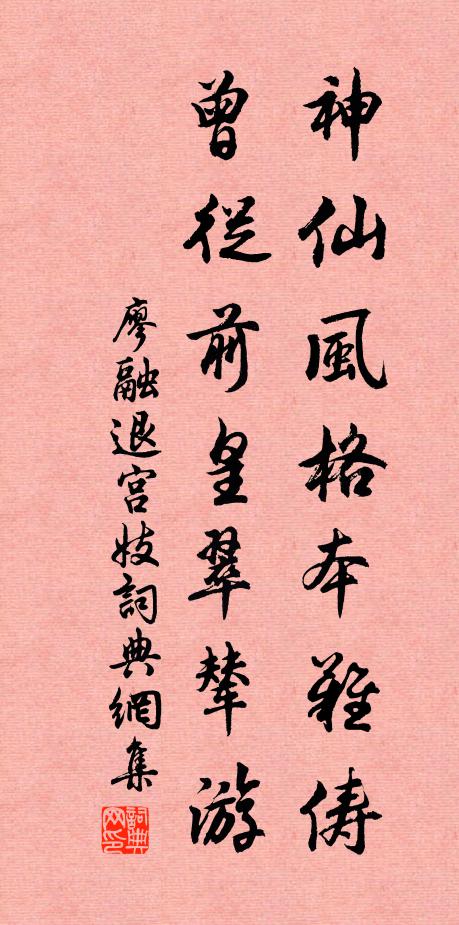 神仙風格本難儔
曾從前皇翠輦游
廖融退宮妓詞典網集
詞典网印